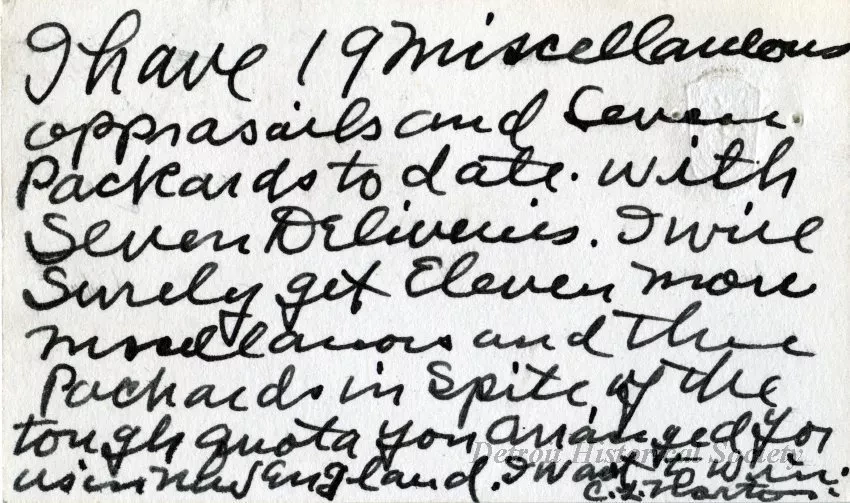 I have 19 miscellaneous
apprasails and Seven
Packards to date. with
Seven Deliveries. I will
Surely get Eleven more
miscellanous and three
Packards in Spite of the
tough quota you arranged for
us in New England. I want to win.
Detroit Historical Society